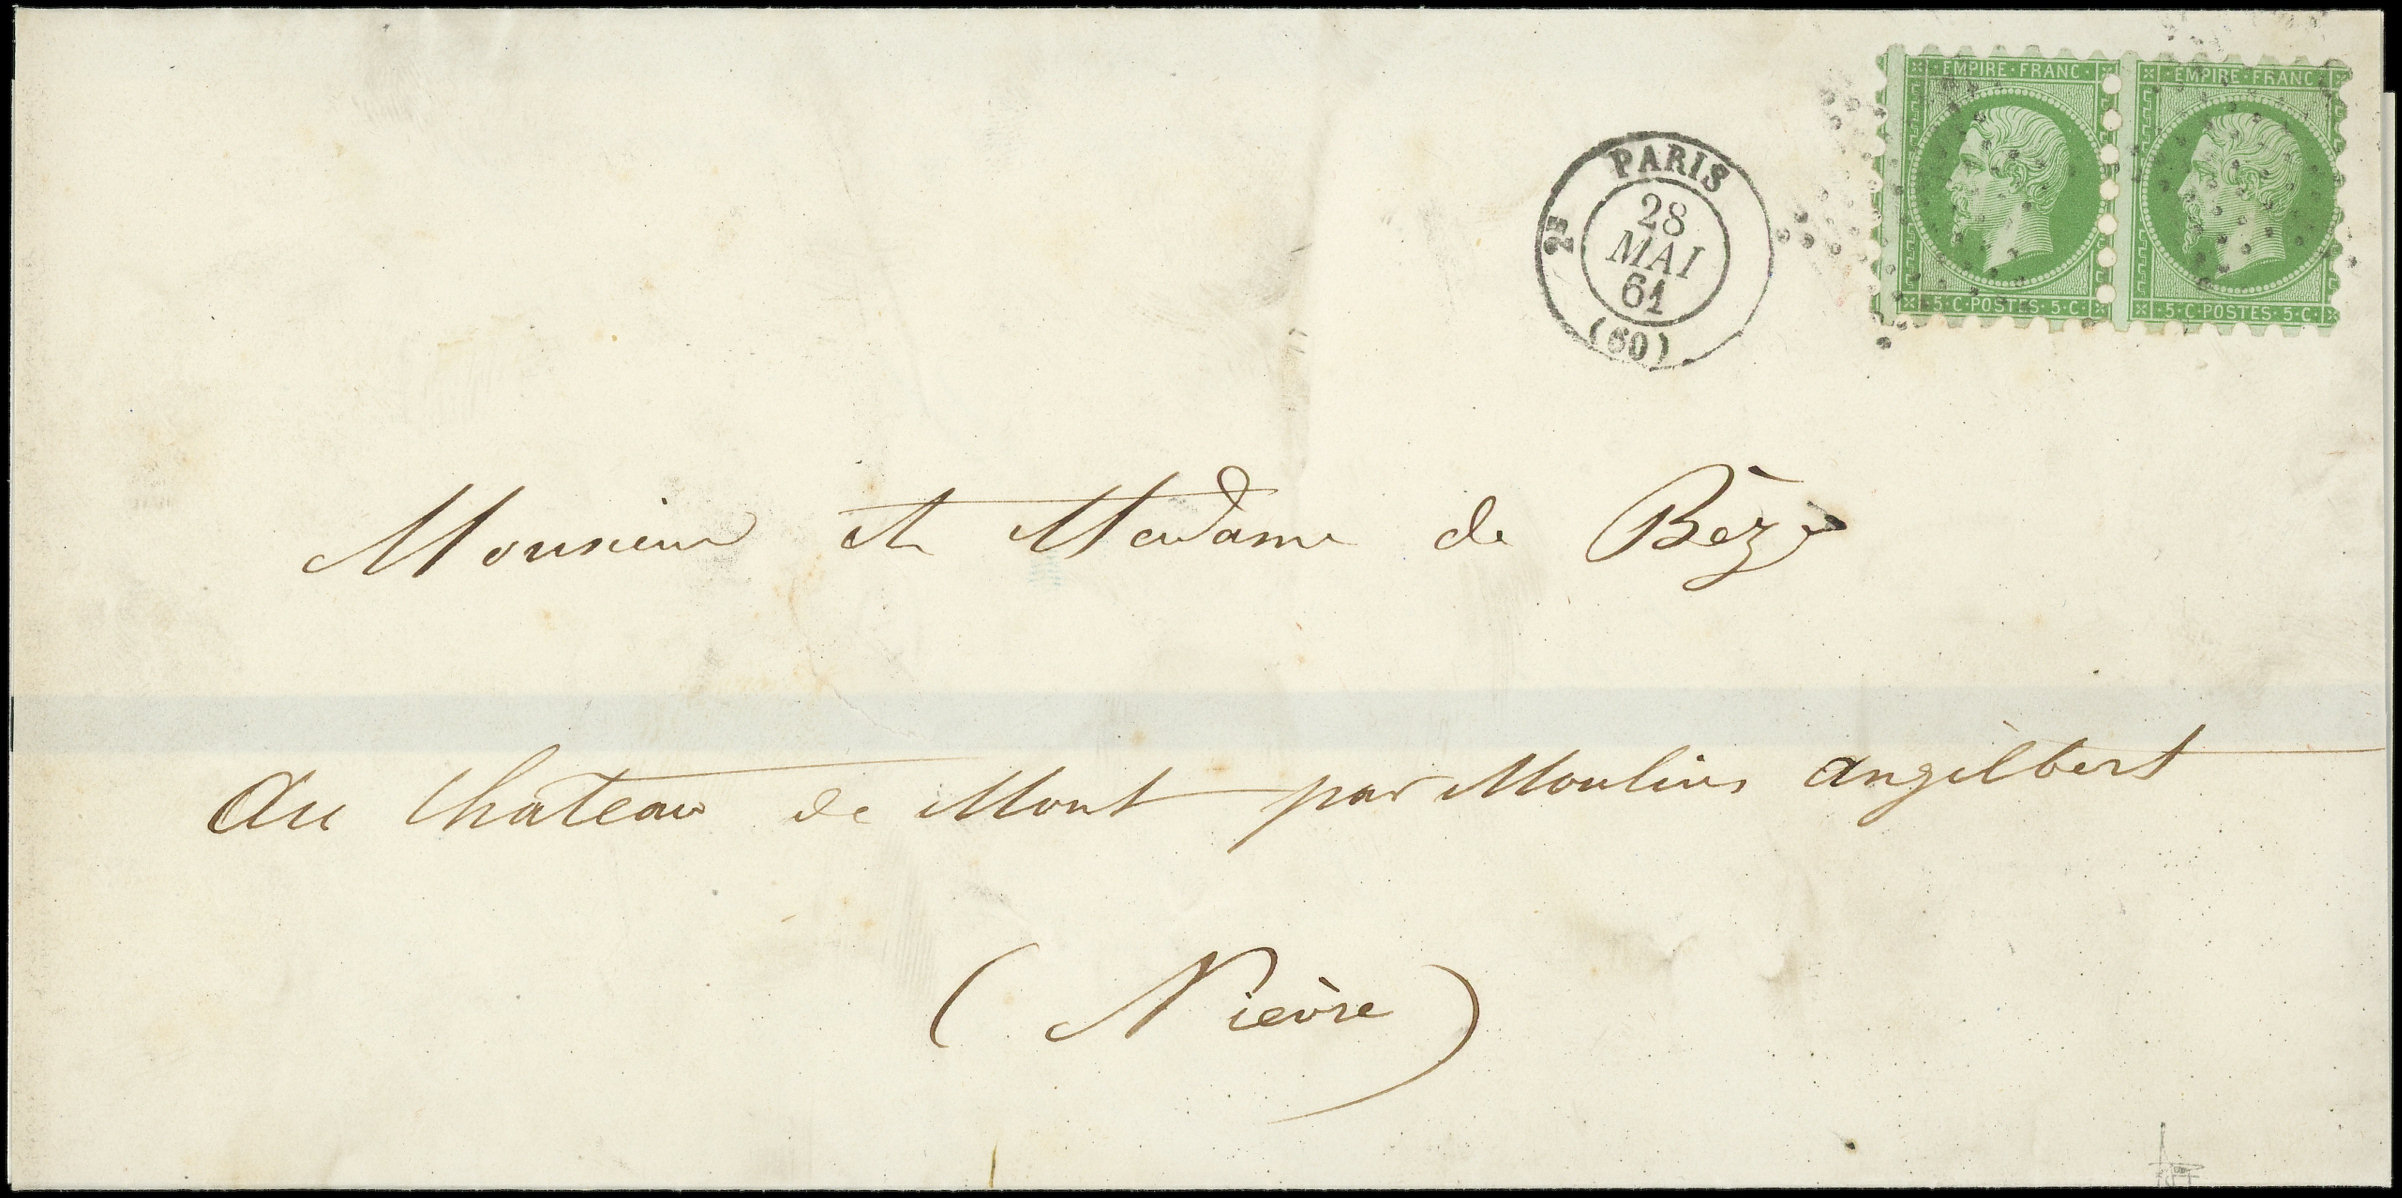 EMPIRE · FRANC · EMPIRE · FRANC ·
5 · C · POSTES · 5 · C · 5 · C · POSTES · 5 · C ·
PARIS
2E
28
MAI
61
(60)
Monsieur et Madame de Bèze
Au Chateau de Mont par Moulins Angilbert
(Nièvre)